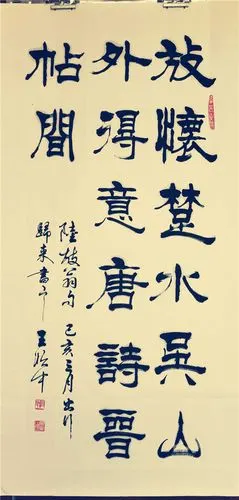 放懷楚水吳山
外得意唐詩晉
帖間
陸放翁句己亥三月出行
歸來書于王